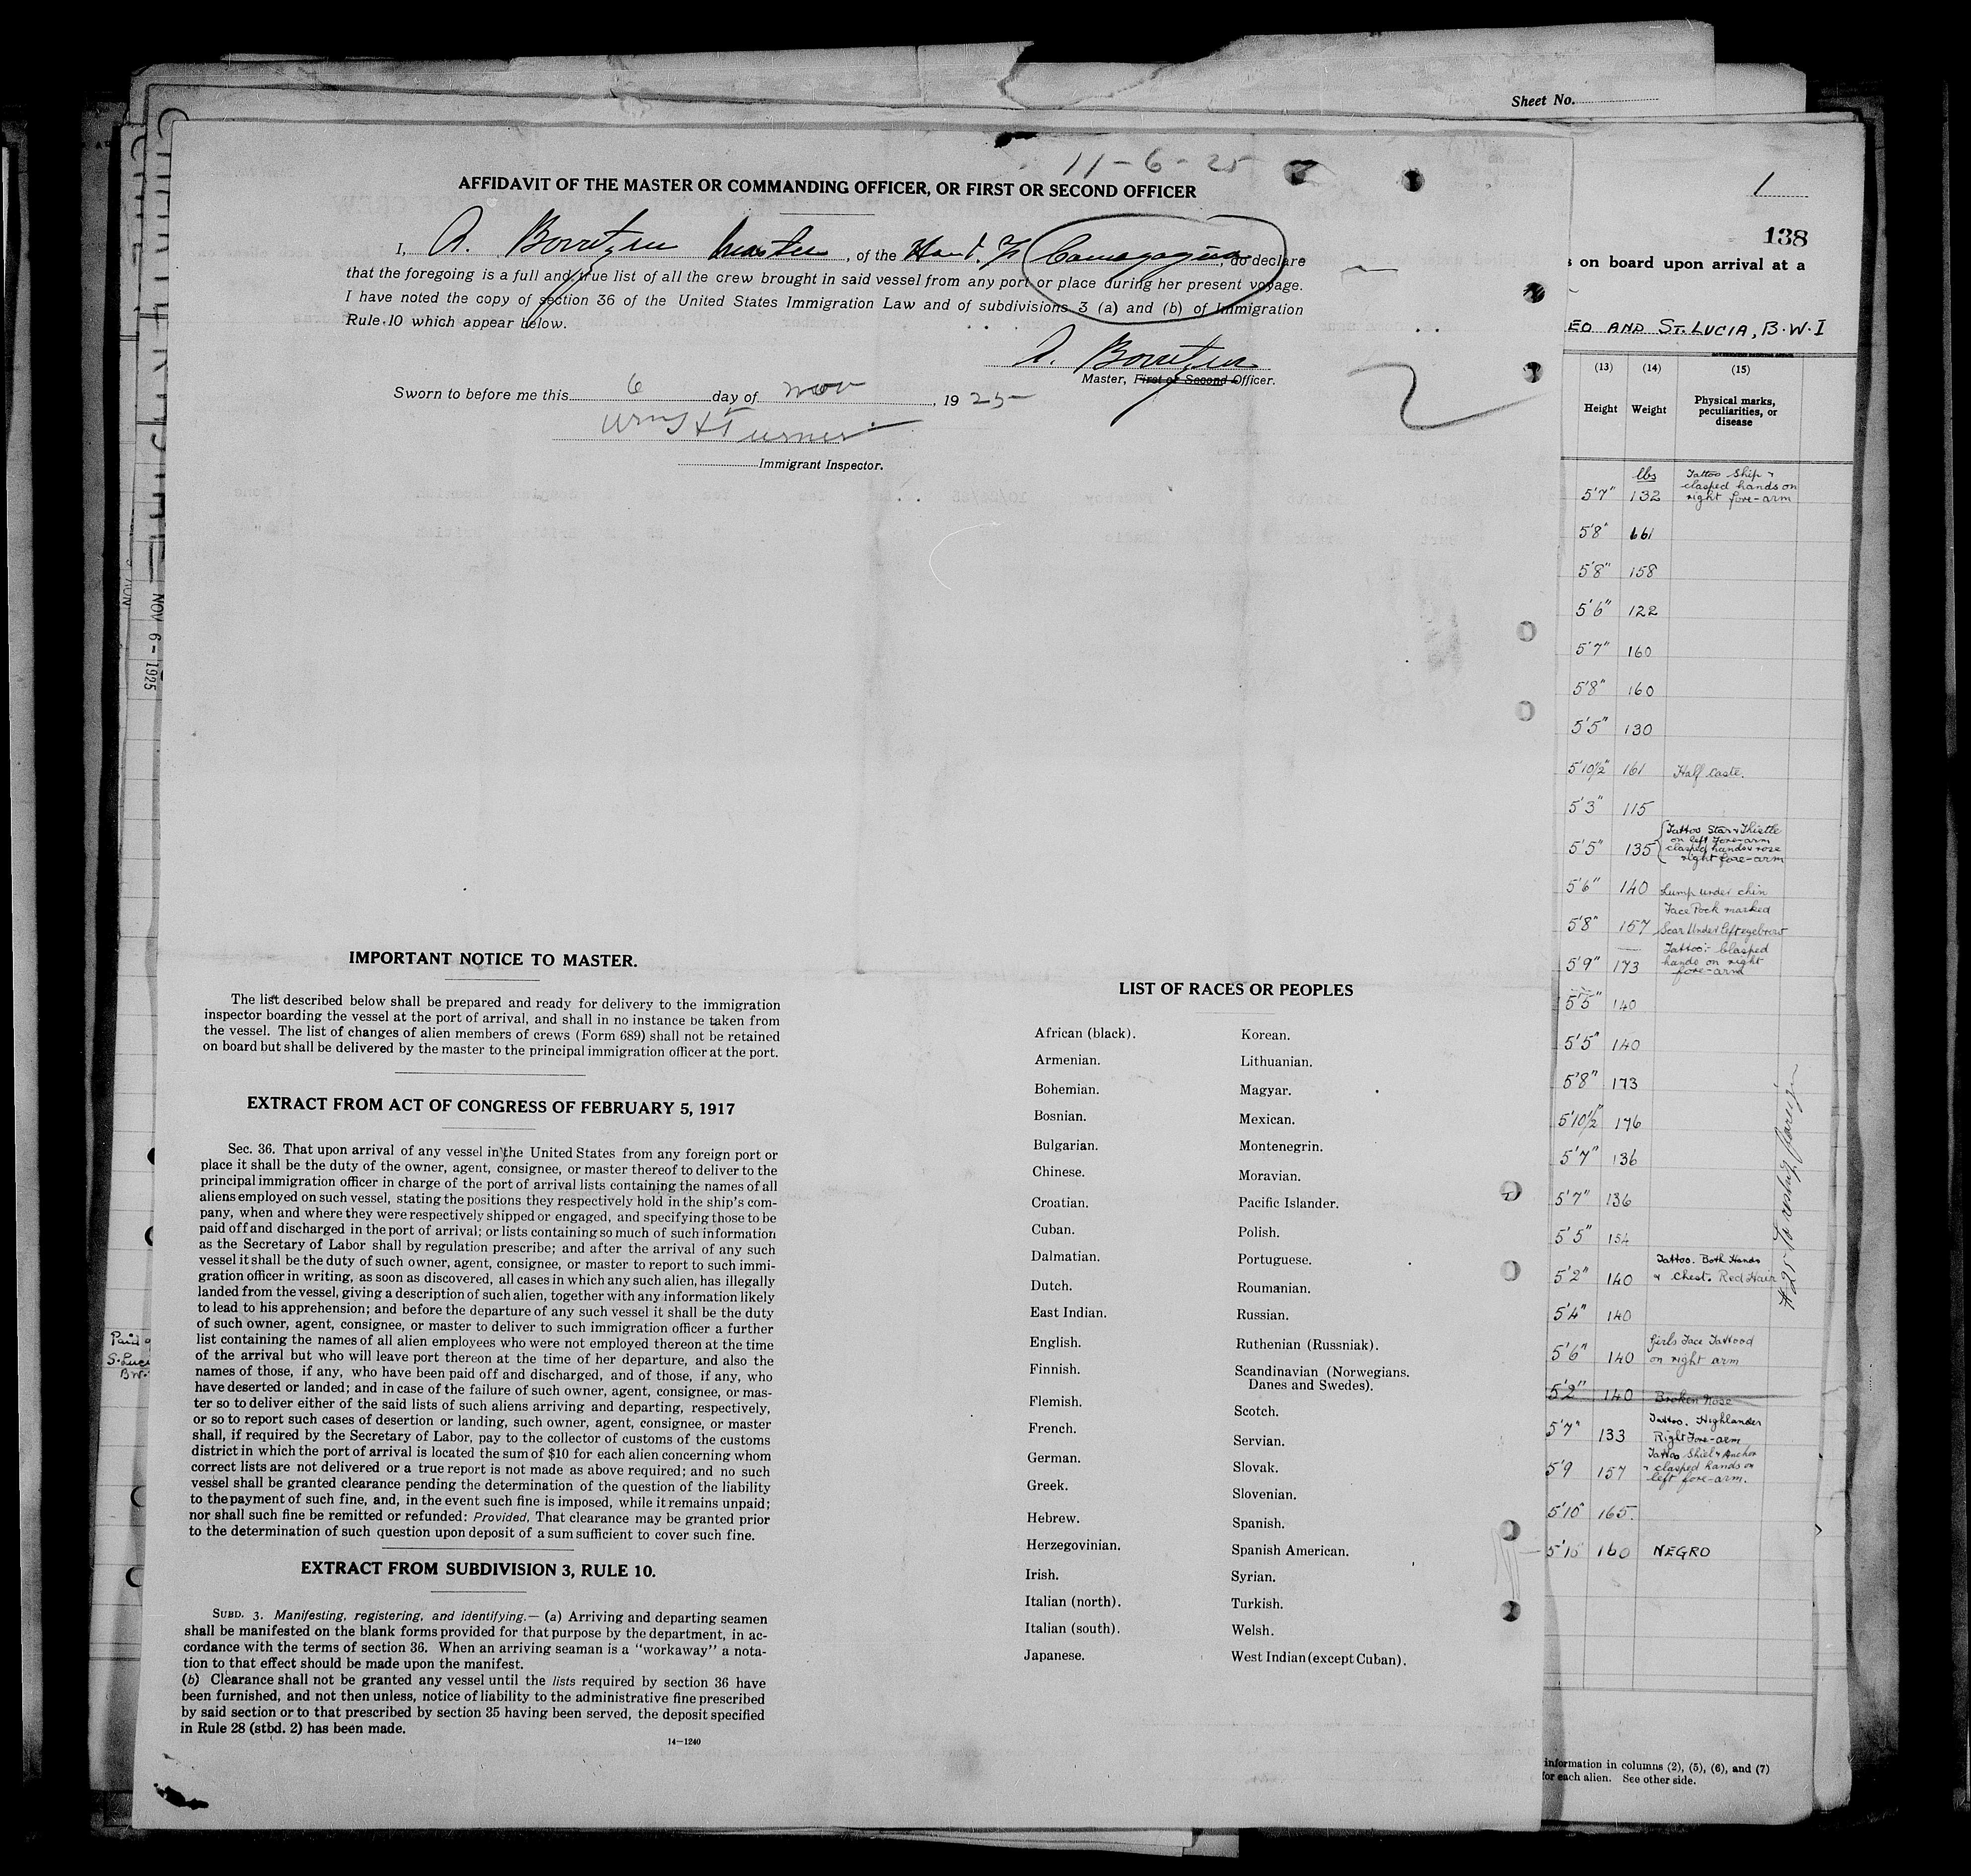 Sheet No.
11-6-25
AFFIDAVIT OF THE MASTER OR COMMANDING OFFICER, OR FIRST OR SECOND OFFICER
I, A. master, of the do declare
that the foregoing is a full and true list of all the crew brought in said vessel from any port or place during her present voyage.
I have noted the copy of section 36 of the United States Immigration Law and of subdivisions 3 (a) and (b) of Immigration
Rule 10 which appear below.
A.
Master, First or Second Officer.
Sworn to before me this 6 day of Nov, 1925
Turner
Immigrant Inspector.
IMPORTANT NOTICE TO MASTER.
The list described below shall be prepared and ready for delivery to the immigration
inspector boarding the vessel at the port of arrival, and shall in no instance be taken from
the vessel. The list of changes of alien members of crews (Form 689) shall not be retained
on board but shall be delivered by the master to the principal immigration officer at the port.
EXTRACT FROM ACT OF CONGRESS OF FEBRUARY 5, 1917
Sec. 36. That upon arrival of any vessel in the United States from any foreign port or
place it shall be the duty of the owner, agent, consignee, or master thereof to deliver to the
principal immigration officer in charge of the port of arrival lists containing the names of all
aliens employed on such vessel, stating the positions they respectively hold in the ship's com-
pany, when and where they were respectively shipped or engaged, and specifying those to be
paid off and discharged in the port of arrival; or lists containing so much of such information
as the Secretary of Labor shall by regulation prescribe; and after the arrival of any such
vessel it shall be the duty of such owner, agent, consignee, or master to report to such immi-
gration officer in writing, as soon as discovered, all cases in which any such alien, has illegally
landed from the vessel, giving a description of such alien, together with any information likely
to lead to his apprehension; and before the departure of any such vessel it shall be the duty
of such owner, agent, consignee, or master to deliver to such immigration officer a further
list containing the names of all alien employees who were not employed thereon at the time
of the arrival but who will leave port thereon at the time of her departure, and also the
names of those, if any, who have been paid off and discharged, and of those, if any, who
have deserted or landed; and in case of the failure of such owner, agent, consignee, or mas-
ter so to deliver either of the said lists of such aliens arriving and departing, respectively,
or so to report such cases of desertion or landing, such owner, agent, consignee, or master
shall, if required by the Secretary of Labor, pay to the collector of customs of the customs
district in which the port of arrival is located the sum of $10 for each alien concerning whom
correct lists are not delivered or a true report is not made as above required; and no such
vessel shall be granted clearance pending the determination of the question of the liability
to the payment of such fine, and, in the event such fine is imposed, while it remains unpaid;
nor shall such fine be remitted or refunded: Provided, That clearance may be granted prior
to the determination of such question upon deposit of a sum sufficient to cover such fine.
EXTRACT FROM SUBDIVISION 3, RULE 10.
SUBD. 3. Manifesting, registering, and identifying.— (a) Arriving and departing seamen
shall be manifested on the blank forms provided for that purpose by the department, in ac-
cordance with the terms of section 36. When an arriving seaman is a "workaway" a nota-
tion to that effect should be made upon the manifest.
(b) Clearance shall not be granted any vessel until the lists required by section 36 have
been furnished, and not then unless, notice of liability to the administrative fine prescribed
by said section or to that prescribed by section 35 having been served, the deposit specified
in Rule 28 (stbd. 2) has been made.
14—1240
LIST OF RACES OR PEOPLES
African (black). Korean.
Armenian. Lithuanian.
Bohemian. Magyar.
Bosnian. Mexican.
Bulgarian. Montenegrin.
Chinese. Moravian.
Croatian. Pacific Islander.
Cuban. Polish.
Dalmatian. Portuguese.
Dutch. Roumanian.
East Indian. Russian.
English. Ruthenian (Russniak).
Finnish. Scandinavian (Norwegians.
Danes and Swedes).
Flemish. Scotch.
French. Servian.
German. Slovak.
Greek. Slovenian.
Hebrew. Spanish.
Herzegovinian. Spanish American.
Irish. Syrian.
Italian (north). Turkish.
Italian (south). Welsh.
Japanese. West Indian (except Cuban).
NOV 6 - 1925
Paid
S. Luc
B.W.
1
138
s on board upon arrival at a
EO AND ST. LUCIA, B.W.I
(13) (14) (15)
Height Weight Physical marks,
peculiarities, or
disease
lbs Tattoo Ship &
clasped hands on
5'7" 132 right fore-arm
5'8" 161
5'8" 158
5'6" 122
5'7" 160
5'8" 160
5'5" 130
5'10½" 161 Half caste.
5'3" 115
Tattoo Star & Thistle
on left Fore-arm
5'5" 135 clasped hands & rose
right fore-arm
5'6" 140 Lump under chin
Face Pock marked
5'8" 157 Scar Under left eyebrow
Tattoo:- Clasped
5'9" 173 hands on right
fore-arm
5'5" 140
5'5" 140
5'8" 173
5'10½" 176
5'7" 136
5'7" 136
5'5" 154
Tattoo. Both Hands
5'2" 140 & chest. Red Hair
5'4" 140
Girls Face Tattood
5'6" 140 on right arm
5'2" 140 Broken Nose
Tattoo. Highlander
5'7" 133 Right Fore-arm
Tattoo Shield & Anchor
5'9 157 & clasped hands on
left fore-arm.
5'10" 165.
5'10" 160 NEGRO
#25 to reship foreign
information in columns (2), (5), (6), and (7)
for each alien. See other side.